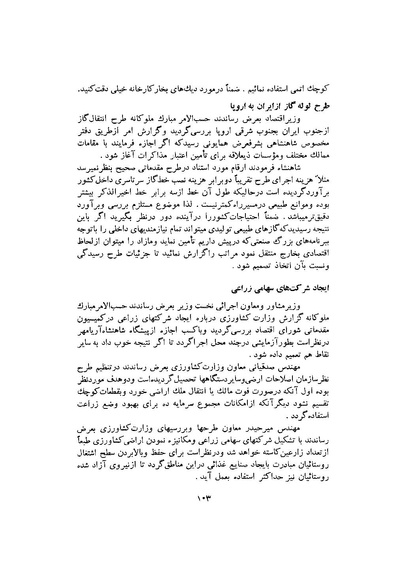 کوچک اتمی استفاده نمائیم . ضمناً درمورد دیک‌های بخارکارخانه خیلی دقت‌کنید.
طرح لوله گاز ازایران به اروپا
وزیراقتصاد بعرض رساندند حسب‌الامر مبارک ملوکانه طرح انتقال‌گاز
ازجنوب ایران بجنوب شرقی اروپا بررسی‌گردید وگزارش امر ازطریق دفتر
مخصوص شاهنشاهی بشرفعرض همایونی رسیدکه اگر اجازه فرمایند با مقامات
ممالک مختلف ومؤسسات ذیعلاقه برای تأمین اعتبار مذاکرات آغاز شود .
شاهنشاه فرمودند ارقام مورد استناد درطرح مقدماتی صحیح بنظرنمیرسد
مثلاً هزینه اجرای طرح تقریباً دوبرابر هزینه نصب خط‌گاز سرتاسری داخل‌کشور
برآوردگردیده است درحالیکه طول آن خط ازسه برابر خط اخیرالذکر بیشتر
بوده وموانع طبیعی درمسیرراه‌کمترنیست . لذا موضوع مستلزم بررسی وبرآورد
دقیق‌ترمیباشد . ضمناً احتیاجات‌کشوررا درآینده دور درنظر بگیرید اگر باین
نتیجه رسیدیدکه‌گازهای طبیعی تولیدی میتواند تمام نیازمندیهای داخلی را باتوجه
ببرنامه‌های بزرگ صنعتی‌که درپیش داریم تأمین نماید ومازاد را میتوان ازلحاظ
اقتصادی بخارج منتقل نمود مراتب راگزارش نمائید تا جزئیات طرح رسیدگی
ونسبت بآن اتخاذ تصمیم شود .
ایجاد شرکت‌های سهامی زراعی
وزیرمشاور ومعاون اجرائی نخست وزیر بعرض رساندند حسب‌الامرمبارک
ملوکانه گزارش وزارت کشاورزی درباره ایجاد شرکتهای زراعی درکمیسیون
مقدماتی شورای اقتصاد بررسی‌گردید وباکسب اجازه ازپیشگاه شاهنشاه‌آریامهر
درنظراست بطورآزمایشی درچند محل اجراگردد تا اگر نتیجه خوب داد به سایر
نقاط هم تعمیم داده شود .
مهندس صدقیانی معاون وزارت‌کشاورزی بعرض رساندند درتنظیم طرح
نظرسازمان اصلاحات ارضی‌وسایردستگاهها تحصیل‌گردیده‌است ودوهدف موردنظر
بوده اول آنکه درصورت فوت مالک یا انتقال ملک اراضی خورد وبقطعات‌کوچک
تقسیم نشود دیگرآنکه ازامکانات مجموع سرمایه ده برای بهبود وضع زراعت
استفاده‌گردد .
مهندس میرحیدر معاون طرحها وبررسیهای وزارت‌کشاورزی بعرض
رساندند با تشکیل شرکتهای سهامی زراعی ومکانیزه نمودن اراضی‌کشاورزی طبعاً
ازتعداد زارعین‌کاسته خواهد شد ودرنظراست برای حفظ وبالابردن سطح اشتغال
روستائیان مبادرت بایجاد صنایع غذائی دراین مناطق‌گردد تا ازنیروی آزاد شده
روستائیان نیز حداکثر استفاده بعمل آید .
۱۰۳